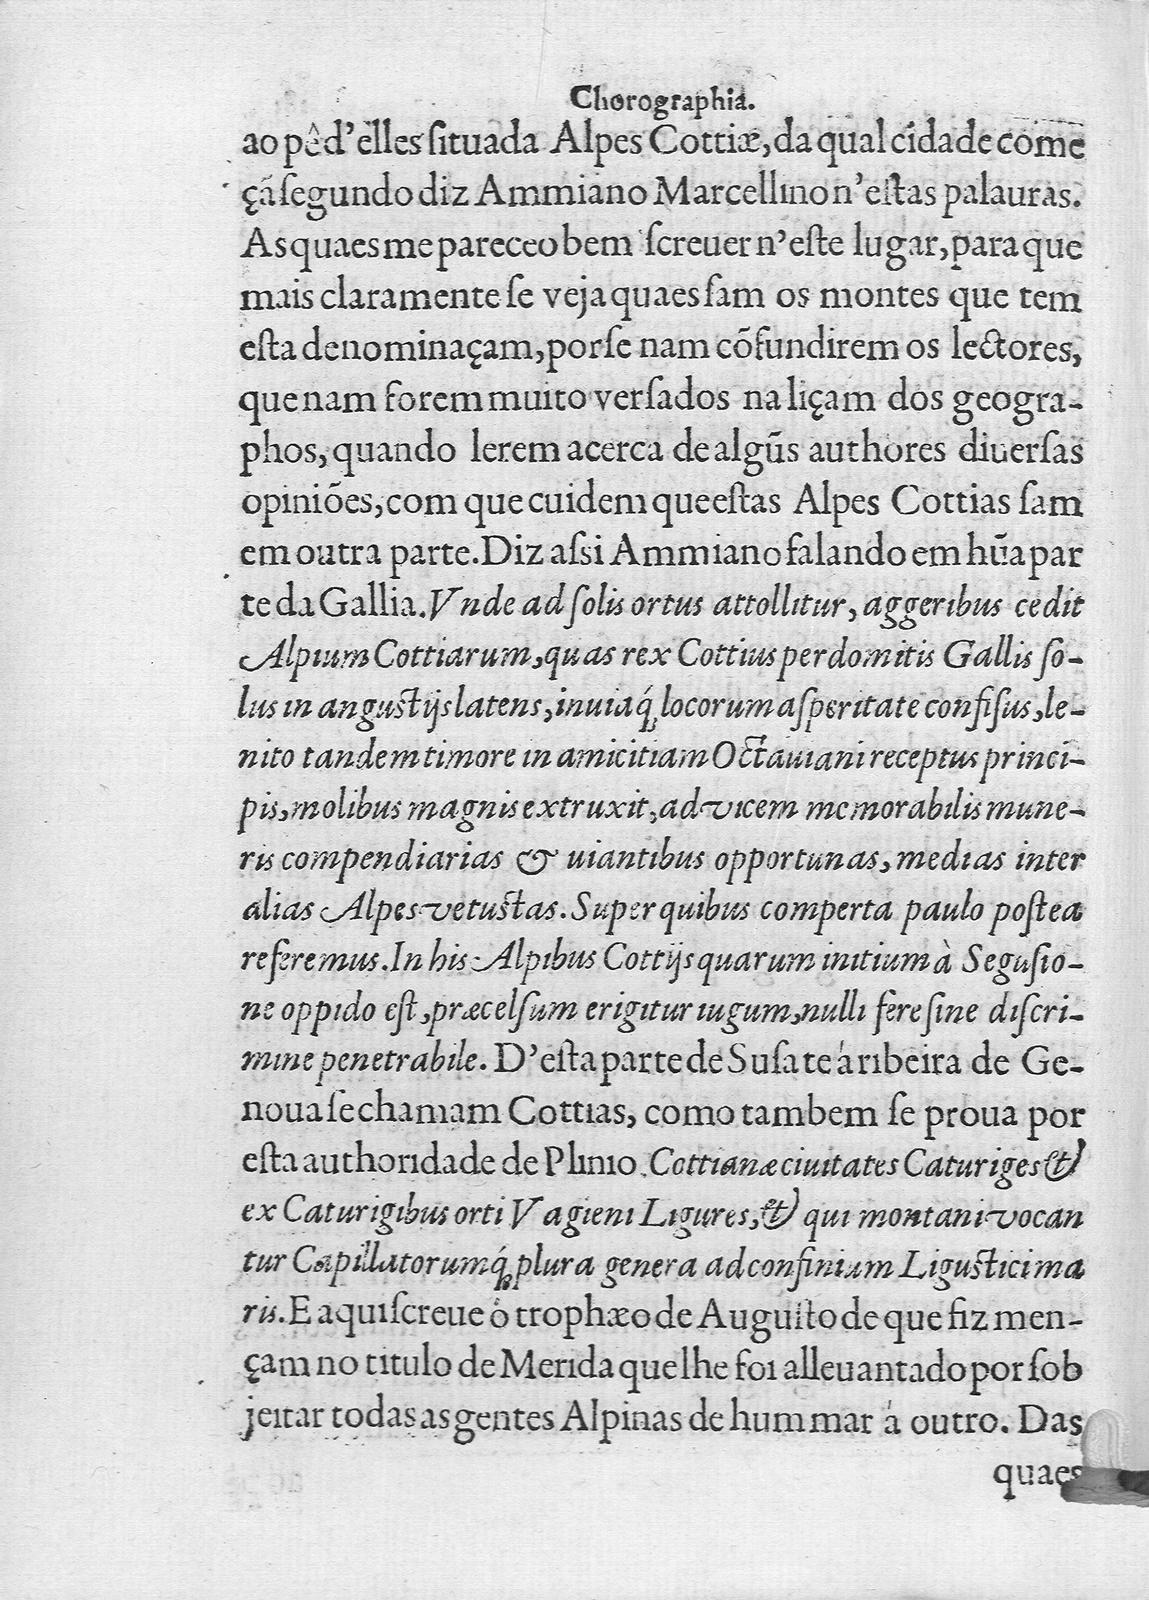 Chorographia.
ao pê d'elles ſituada Alpes Cottiæ, da qual cidade come
çã ſegundo diz Ammiano Marcellino n'eſtas palauras.
As quaes me pareceo bem ſcreuer n'eſte lugar, para que
mais claramente ſe veja quaes ſam os montes que tem
eſta denominaçam, por ſe nam cõfundirem os lectores,
que nam forem muito verſados na liçam dos geogra-
phos, quando lerem acerca de algũs authores diuerſas
opiniões, com que cuidem que eſtas Alpes Cottias ſam
em outra parte. Diz aſsi Ammiano falando em hũa par
te da Gallia. Vnde ad ſolis ortus attollitur, aggeribus cedit
Alpium Cottiarum, quas rex Cottius perdomitis Gallis ſo-
lus in anguſtijs latens, inuiáq́; locorum aſperitate confiſus, le-
nito tandem timore in amicitiam Octauiani receptus princi-
pis, molibus magnis extruxit, ad vicem memorabilis mune-
ris compendiarias & uiantibus opportunas, medias inter
alias Alpes vetuſtas. Super quibus comperta paulo poſtea
referemus. In his Alpibus Cottijs quarum initium à Seguſio-
ne oppido eſt, præcelſum erigitur iugum, nulli fere ſine diſcri-
mine penetrabile. D'eſta parte de Suſa te á ribeira de Ge-
noua ſe chamam Cottias, como tambem ſe proua por
eſta authoridade de Plinio. Cottianæ ciuitates Caturiges &
ex Caturigibus orti Vagieni Ligures, & qui montani vocan
tur Capillatorumq́; plura genera ad confinium Liguſtici ma
ris. E aqui ſcreue ó trophæo de Auguſto de que fiz men-
çam no titulo de Merida que lhe foi alleuantado por ſob
jeitar todas as gentes Alpinas de hum mar á outro. Das
quaes